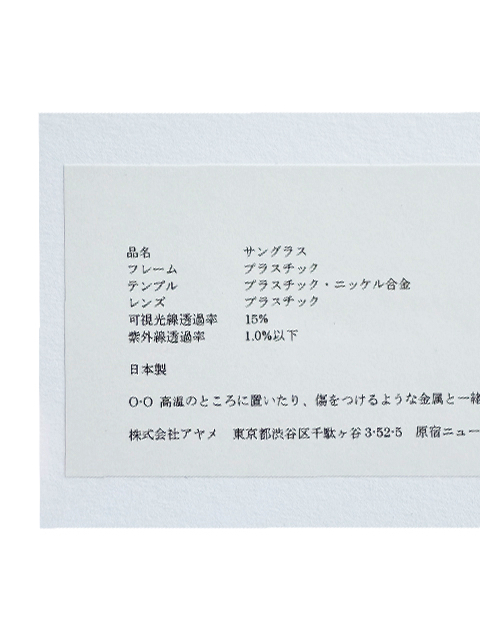 品名 サングラス
フレーム プラスチック
テンプル プラスチック・ニッケル合金
レンズ プラスチック
可視光線透過率 15%
紫外線透過率 1.0%以下
日本製
O-O 高温のところに置いたり、傷をつけるような金属と一緒
株式会社アヤメ 東京都渋谷区千駄ヶ谷3-52-5 原宿ニュー